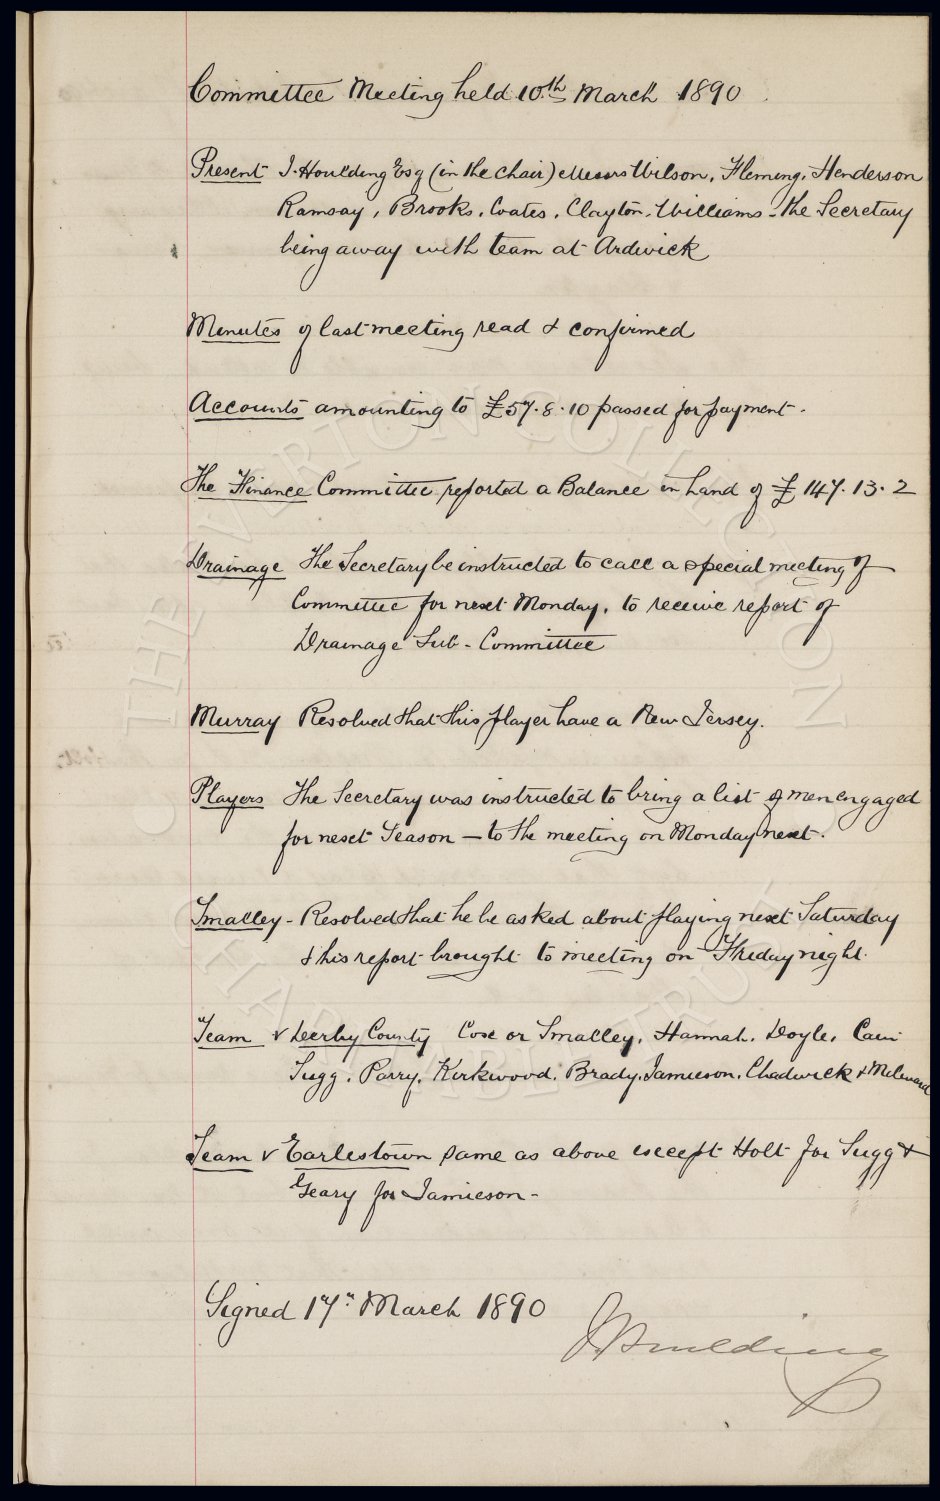 Committee Meeting held 10th March 1890
Present J. Houlding Esq (in the chair) Messrs Wilson, Fleming, Henderson
Ramsay, Brooks, Coates, Clayton, Williams - the Secretary
being away with team at Ardwick
Minutes of last meeting read & confirmed
Accounts amounting to £57.8.10 passed for payment.
The Finance Committee reported a Balance in hand of £147.13.2
Drainage The Secretary be instructed to call a special meeting of
Committee for next Monday, to receive report of
Drainage Sub-Committee
Murray Resolved that this player have a New Jersey.
Players The Secretary was instructed to bring a list of men engaged
for next Season — to the meeting on Monday next.
Smalley - Resolved that he be asked about playing next Saturday
& his report brought to meeting on Friday night.
Team v Derby County Cox or Smalley, Hannah, Doyle, Cain
Sugg, Parry, Kirkwood, Brady, Jamieson, Chadwick & Milward
Team v Earlestown same as above except Holt for Sugg &
Geary for Jamieson -
Signed 17th March 1890
J. Houlding
THE EVERTON COLLECTION
CHARITABLE TRUST